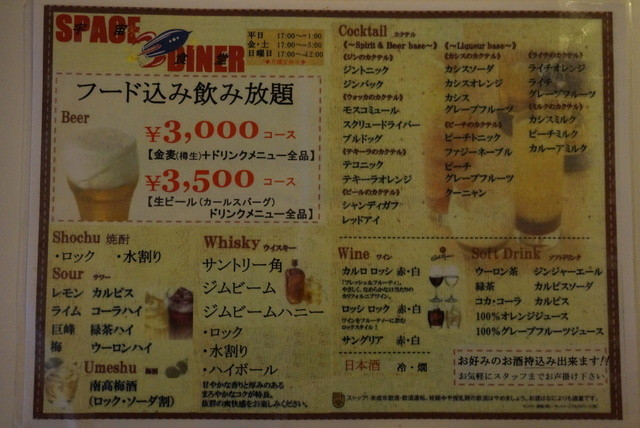 SPACE
宇宙
DINER
食堂
平日 17:00〜1:00
金・土 17:00〜5:00
日曜日 17:00〜2:00
フード込み飲み放題
Beer
¥3,000 コース
【金麦(樽生)+ドリンクメニュー全品】
¥3,500 コース
【生ビール(カールスバーグ)
ドリンクメニュー全品】
Shochu 焼酎
・ロック ・水割り
Sour サワー
レモン カルピス
ライム コーラハイ
巨峰 緑茶ハイ
梅 ウーロンハイ
Umeshu 梅酒
南高梅酒
(ロック・ソーダ割)
Whisky ウイスキー
サントリー角
ジムビーム
ジムビームハニー
・ロック
・水割り
・ハイボール
甘やかな香りと厚みのある
まろやかなコクが特長。
抜群の爽快感をお楽しみください。
Cocktail カクテル
《〜Spirit & Beer base〜》
《ジンのカクテル》
ジントニック
ジンバック
《ウォッカのカクテル》
モスコミュール
スクリュードライバー
ブルドッグ
《テキーラのカクテル》
テコニック
テキーラオレンジ
《ビールのカクテル》
シャンディガフ
レッドアイ
《〜Liqueur base〜》
《カシスのカクテル》
カシスソーダ
カシスオレンジ
カシス
グレープフルーツ
《ピーチのカクテル》
ピーチトニック
ファジーネーブル
ピーチ
グレープフルーツ
クーニャン
《ライチのカクテル》
ライチオレンジ
ライチ
グレープフルーツ
《ミルクのカクテル》
カシスミルク
ピーチミルク
カルーアミルク
Wine ワイン
カルロ ロッシ 赤・白
「フレッシュ&フルーティ」。
やさしく、なめらかな口当たりの
カリフォルニアワイン。
ロッシ ロック 赤・白
ワインをフルーティーに飲む
ロックスタイル!
サングリア 赤・白
日本酒 冷・燗
Soft Drink ソフトドリンク
ウーロン茶 ジンジャーエール
緑茶 カルピスソーダ
コカ・コーラ カルピス
100%オレンジジュース
100%グレープフルーツジュース
お好みのお酒持込み出来ます!!
お気軽にスタッフまでお声掛け下さい。
ストップ!未成年飲酒・飲酒運転。妊娠中や授乳期の飲酒はやめましょう。お酒はなによりも適量です。